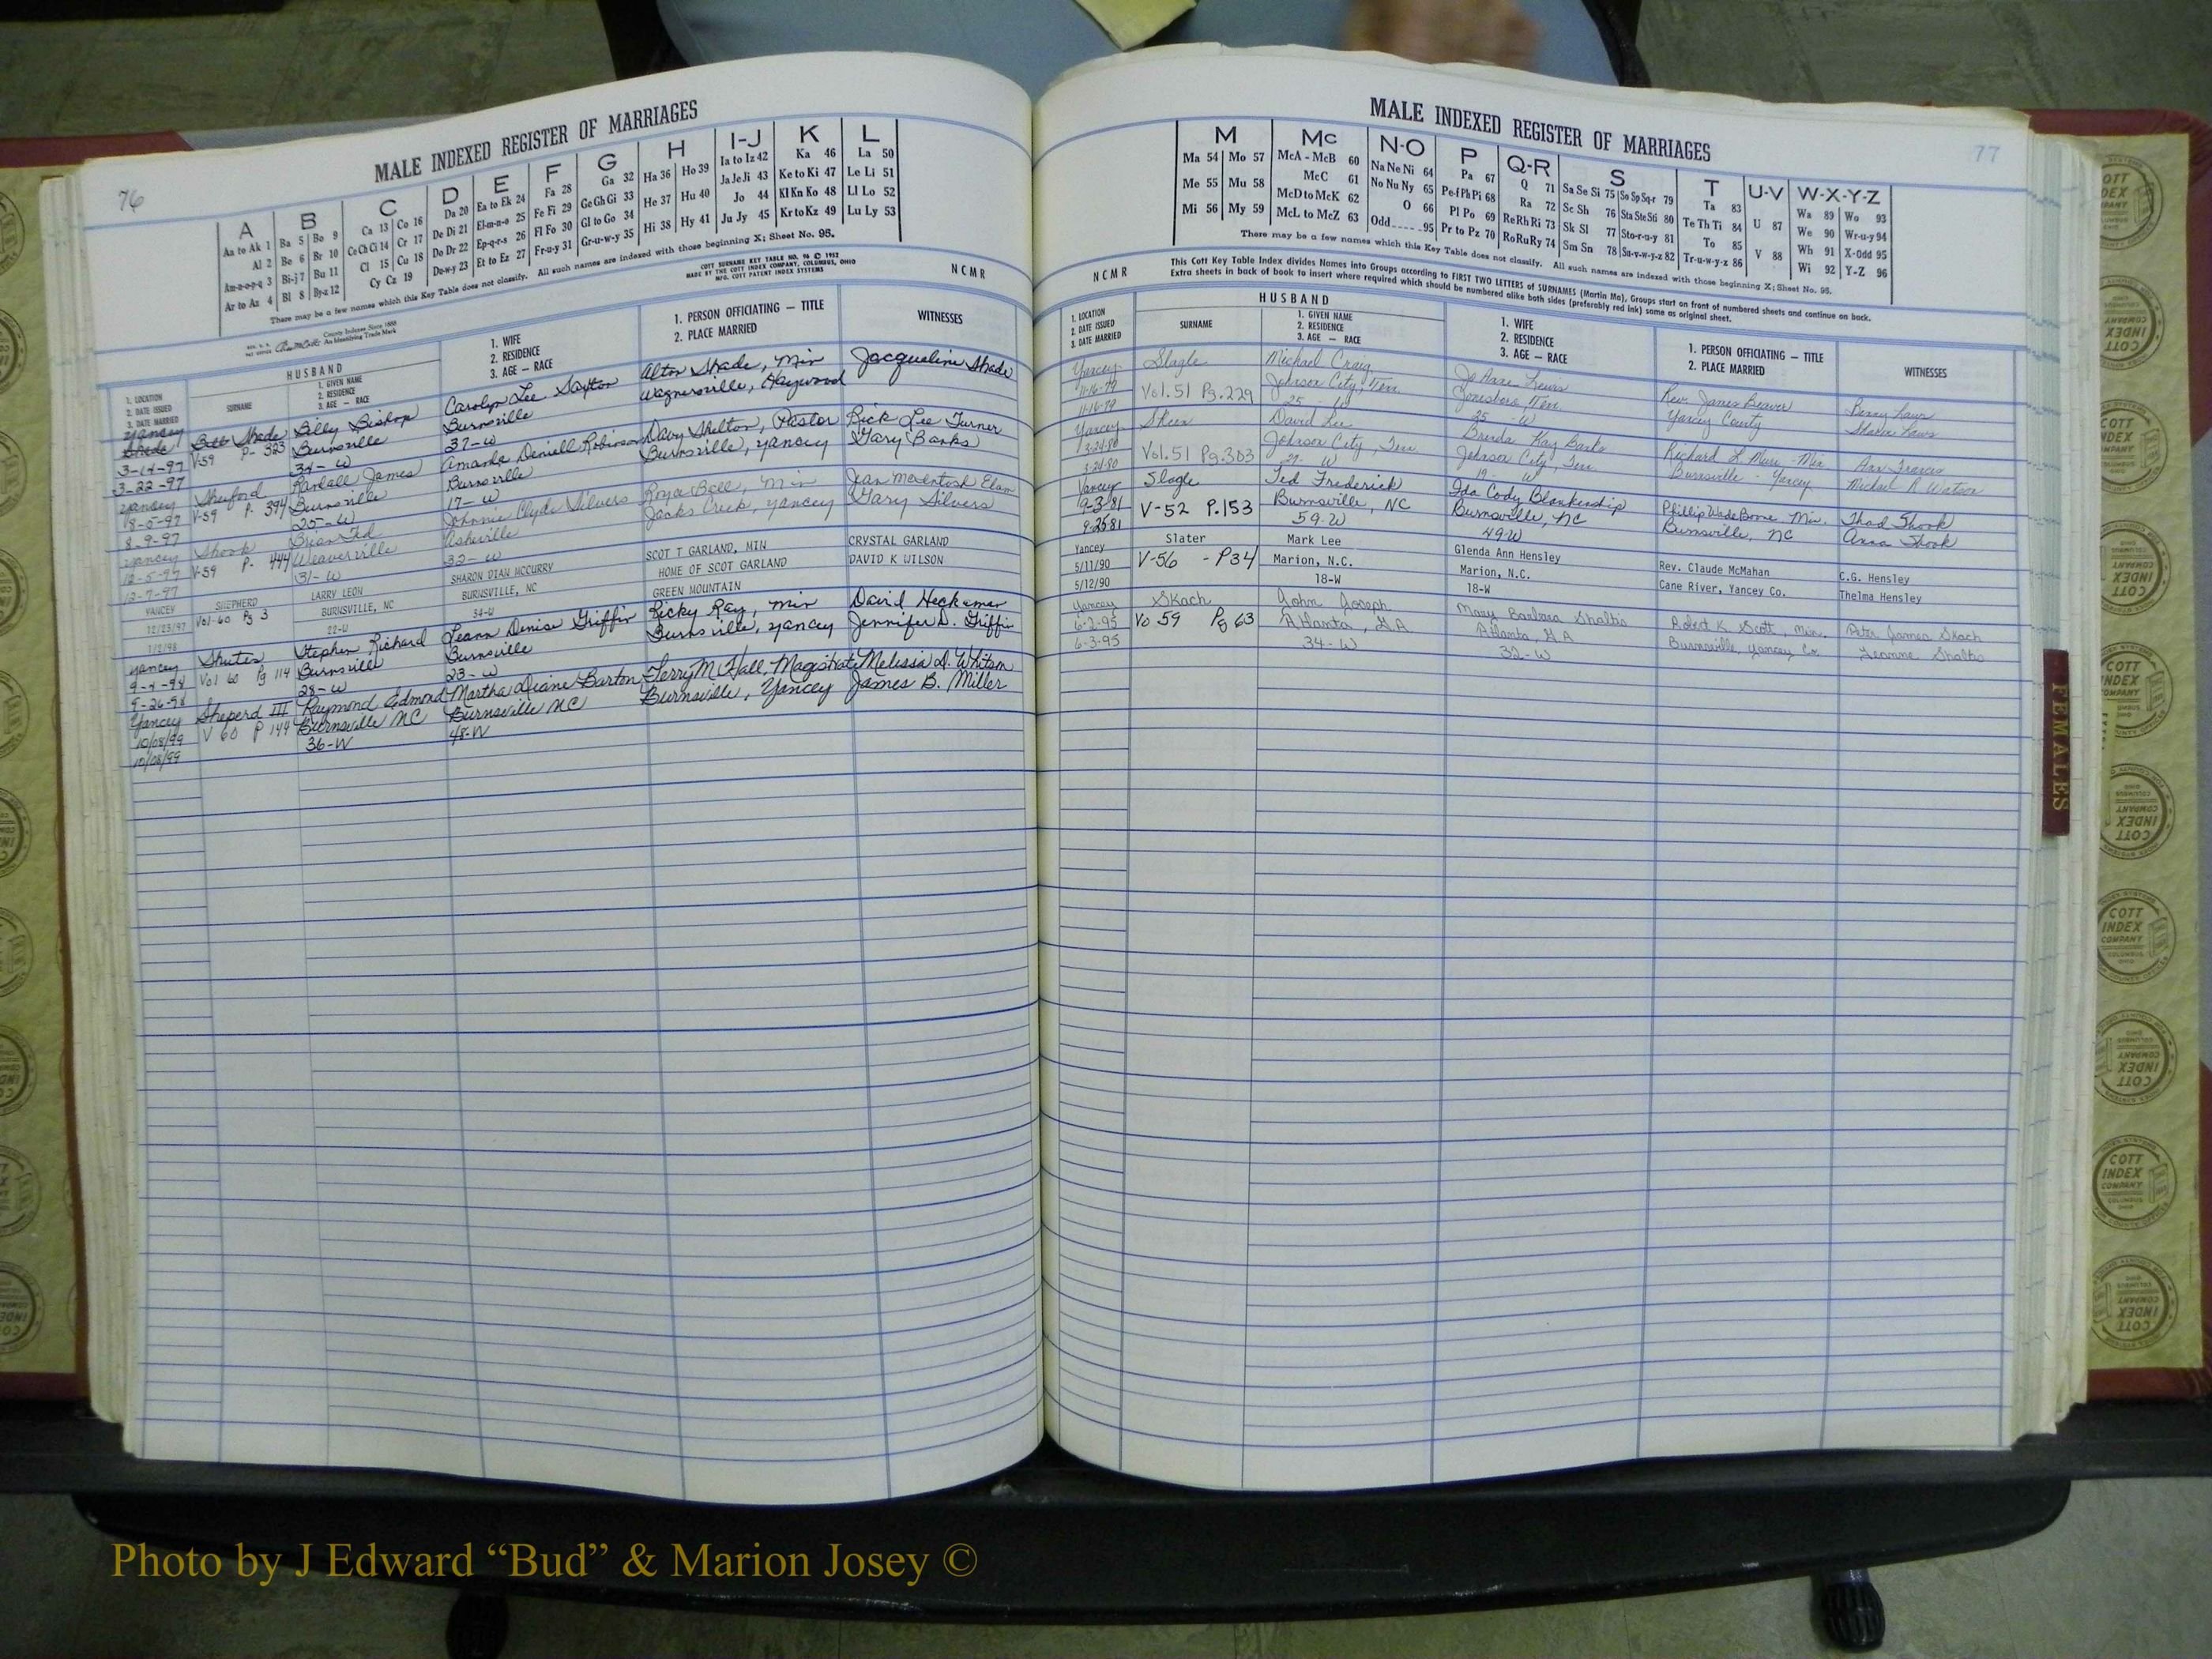 76
MALE INDEXED REGISTER OF MARRIAGES
A B C D E F G H I-J K L
Aa to Ak 1 Ba 5 Bo 9 Ca 13 Co 16 Da 20 Ea to Ek 24 Fa 28 Ga 32 Ha 36 Ho 39 Ia to Iz 42 Ka 46 La 50
Al 2 Be 6 Br 10 Ce Ch Ci 14 Cr 17 De Di 21 El-m-n-o 25 Fe Fi 29 Ge Gh Gi 33 He 37 Hu 40 Ja Je Ji 43 Ke to Ki 47 Le Li 51
Am-n-o-p-q 3 Bi-j 7 Bu 11 Cl 15 Cu 18 Do Dr 22 Ep-q-r-s 26 Fl Fo 30 Gl to Go 34 Hi 38 Hy 41 Jo 44 Kl Kn Ko 48 Ll Lo 52
Ar to Az 4 Bl 8 By-z 12 Cy Cz 19 Du-w-y 23 Et to Ez 27 Fr-u-y 31 Gr-u-w-y 35 Ju Jy 45 Kr to Kz 49 Lu Ly 53
There may be a few names which this Key Table does not classify. All such names are indexed with those beginning X; Sheet No. 95.
COTT SURNAME KEY TABLE NO. 96 © 1952
MADE BY THE COTT INDEX COMPANY, COLUMBUS, OHIO
MFG. COTT PATENT INDEX SYSTEMS
NCMR
County Indexes Since 1888
An Identifying Trade Mark
HUSBAND
1. LOCATION
2. DATE ISSUED
3. DATE MARRIED
SURNAME
1. GIVEN NAME
2. RESIDENCE
3. AGE — RACE
1. WIFE
2. RESIDENCE
3. AGE — RACE
1. PERSON OFFICIATING — TITLE
2. PLACE MARRIED
WITNESSES
Yancey Shade Billy Bishop Carolyn Lee Alton Shade, Min Jacqueline Shade
3-14-97 V-59 P- 323 Burnsville Burnsville Haywood
3-22-97 34-W 37-W
Yancey Shuford Randall James Amanda Daniell Robinson Davy Shelton, Pastor Rick Lee Turner
8-5-97 V-59 P. 394 Burnsville Burnsville Burnsville, Yancey Gary Banks
8-9-97 20-W 17-W
Yancey Shook Brian Ted Johnnie Clyde Silvers Min Jean McIntosh Elam
12-5-97 V-59 P- 444 Weaverville Asheville Jacks Creek, Yancey Gary Silvers
12-7-97 31-W 32-W
YANCEY SHEPHERD LARRY LEON SHARON DIAN MCCURRY SCOT T GARLAND, MIN CRYSTAL GARLAND
12/23/97 Vol-60 Pg 3 BURNSVILLE, NC BURNSVILLE, NC HOME OF SCOT GARLAND DAVID K WILSON
1/2/98 22-W 34-W GREEN MOUNTAIN
Yancey Stephen Richard Leann Denise Griffin Ricky Ray, Min David Heckaman
9-4-98 Vol 60 Pg 114 Burnsville Burnsville Burnsville, Yancey Jennifer D. Griffin
9-26-98 28-W 23-W
Yancey Sheperd III Raymond Edmond Martha Diane Barton Terry M Hall, Magistrate Melissa D. Whitson
10/08/99 V 60 P 144 Burnsville NC Burnsville NC Burnsville, Yancey James B. Miller
10/08/99 36-W 48-W
77
MALE INDEXED REGISTER OF MARRIAGES
M Mc N-O P Q-R S T U-V W-X-Y-Z
Ma 54 Mo 57 McA - McB 60 Na Ne Ni 64 Pa 67 Q 71 Sa Se Si 75 So Sp Sq-r 79 Ta 83 U 87 Wa 89 Wo 93
Me 55 Mu 58 McC 61 No Nu Ny 65 Pe-f Ph Pi 68 Ra 72 Sc Sh 76 Sta Ste Sti 80 Te Th Ti 84 V 88 We 90 Wr-u-y 94
Mi 56 My 59 McD to McK 62 O 66 Pl Po 69 Re Rh Ri 73 Sk Sl 77 Sto-r-u-y 81 To 85 Wh 91 X-Odd 95
McL to McZ 63 Odd 95 Pr to Pz 70 Ro Ru Ry 74 Sm Sn 78 Su-v-w-y-z 82 Tr-u-w-y-z 86 Wi 92 Y-Z 96
There may be a few names which this Key Table does not classify. All such names are indexed with those beginning X; Sheet No. 95.
NCMR
This Cott Key Table Index divides Names into Groups according to FIRST TWO LETTERS of SURNAMES (Martin Ma), Groups start on front of numbered sheets and continue on back.
Extra sheets in back of book to insert where required which should be numbered alike both sides (preferably red ink) same as original sheet.
HUSBAND
1. LOCATION
2. DATE ISSUED
3. DATE MARRIED
SURNAME
1. GIVEN NAME
2. RESIDENCE
3. AGE — RACE
1. WIFE
2. RESIDENCE
3. AGE — RACE
1. PERSON OFFICIATING — TITLE
2. PLACE MARRIED
WITNESSES
Yancey Slagle Michael Craig Jo Anne Rev. James Beaver Benny Laws
11-16-79 Vol. 51 Pg. 229 Johnson City, Tenn. Jonesboro, Tenn. Yancey County Sharon Laws
11-16-79 25 - W 25 - W
Yancey Skeen David Lee Brenda Kay Banks Richard L. Min Ann Frances
3-24-80 Vol. 51 Pg. 303 Johnson City, Tenn Johnson City, Tenn. Burnsville - Yancey Michael R Watson
3-24-80 W 19 - W
Yancey Slagle Ted Frederick Ida Cody Blankenship Phillip Wade Boone, Min. Thad Shook
9-3-81 V-52 P.153 Burnsville, NC Burnsville, NC Burnsville, NC Anna Shook
9-25-81 59-W 49-W
Yancey Slater Mark Lee Glenda Ann Hensley Rev. Claude McMahan C.G. Hensley
5/11/90 V-56 - P34 Marion, N.C. Marion, N.C. Cane River, Yancey Co. Thelma Hensley
5/12/90 18-W 18-W
Yancey Skach John Joseph Mary Barbara Shaltis Robert K. Scott, Min. Peter James Skach
6-2-95 Vo 59 Pg 63 Atlanta, GA Atlanta, GA Burnsville, Yancey Co. Jeanne Shaltis
6-3-95 34-W 32-W
FEMALES
COTT
INDEX
COMPANY
Photo by J Edward “Bud” & Marion Josey ©